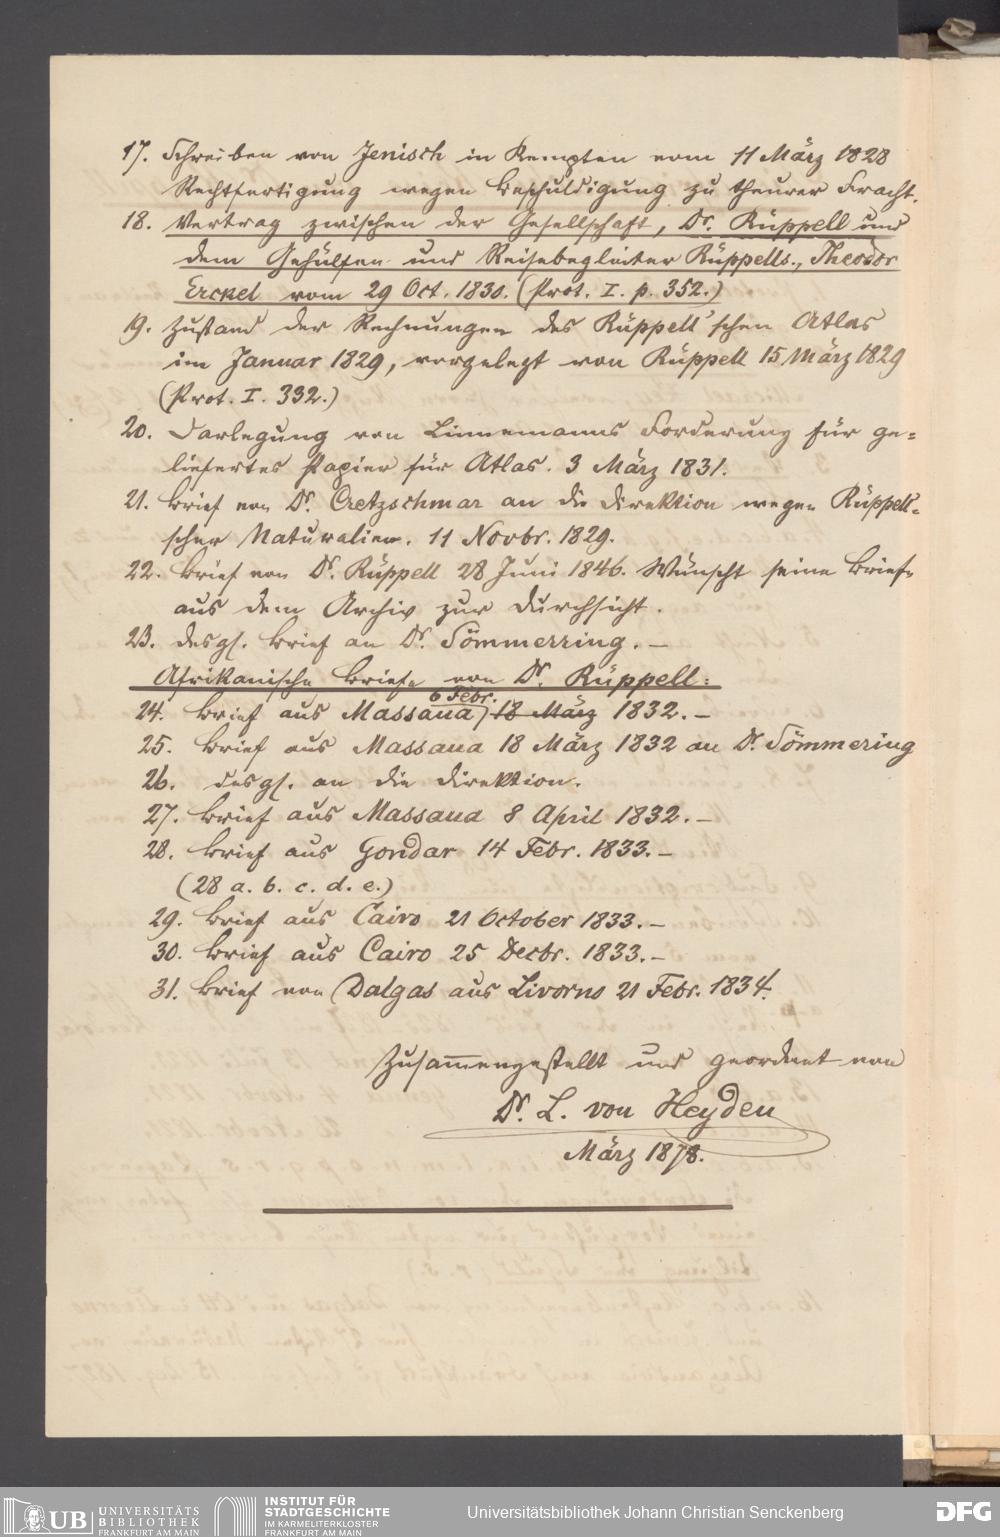 17. Schreiben von Jenisch in Kempten vom 11 März 1828
Rechtfertigung wegen Beschuldigung zu theurer Fracht.
18. Vertrag zwischen der Gesellschaft, Dr. Rüppell und
dem Gehülfen und Reisebegleiter Rüppells, Theodor
Erckel vom 29 Oct. 1830. (Prot. I. p. 352.)
19. Zustand der Rechnungen des Rüppell'schen Atlas
im Januar 1829, vorgelegt von Rüppell 15. März 1829
(Prot. I. 332.)
20. Darlegung von Linnemanns Forderung für ge=
liefertes Papier für Atlas. 3 März 1831.
21. Brief von Dr. Cretzschmar an die Direktion wegen Rüppell'=
scher Naturalien. 11 Novbr. 1829.
22. Brief von Dr. Rüppell 28 Juni 1846. Wünscht seine Briefe
aus dem Archiv zur Durchsicht.
23. desgl. Brief an Dr. Sömmerring. –
Afrikanische Briefe von Dr. Rüppell:
6 Febr.
24. Brief aus Massaua, 18 März 1832. –
25. Brief aus Massaua 18 März 1832 an Dr. Sömmering
26. desgl. an die Direktion.
27. Brief aus Massaua 8 April 1832. –
28. Brief aus Gondar 14 Febr. 1833. –
(28 a. b. c. d. e.)
29. Brief aus Cairo 21 October 1833. –
30. Brief aus Cairo 25 Decbr. 1833. –
31. Brief von Dalgas aus Livorno 21 Febr. 1834.
Zusammengestellt und geordnet von
Dr. L. von Heyden
März 1878.
UB UNIVERSITÄTS
BIBLIOTHEK
FRANKFURT AM MAIN
INSTITUT FÜR
STADTGESCHICHTE
IM KARMELITERKLOSTER
FRANKFURT AM MAIN
Universitätsbibliothek Johann Christian Senckenberg
DFG